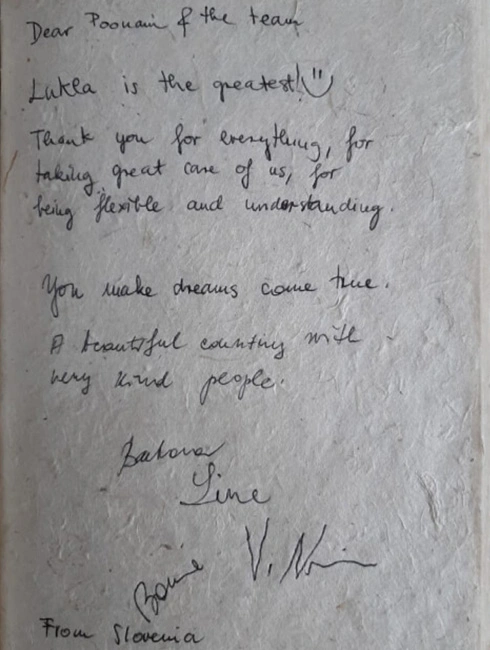 Dear Poonam & the team
Lukla is the greatest!
Thank you for everything, for
taking great care of us, for
being flexible and understanding.
You make dreams come true.
A beautiful counting with
very kind people.
From Slovenia